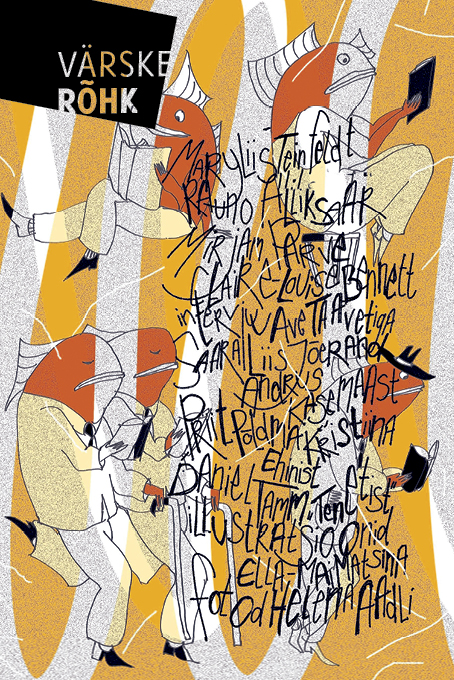 VÄRSKE
RÕHK
MARYLIIS TEINFELDT
RAUNO ALLIKSAAR
MIRJAM PARVE
CLAIRE-LOUISE BENNETT
intERVJUU AVE TAAVETIGA
SAARA LIIS JÕERAND
ANDRUS
KASEMAA
PRIIT PÕLDMA KRISTIINA
EHINIST
DANIEL TAMM
illUSTRATSIOONid
ELLA-MAI MATSINA
fotOd HELENA AADLI